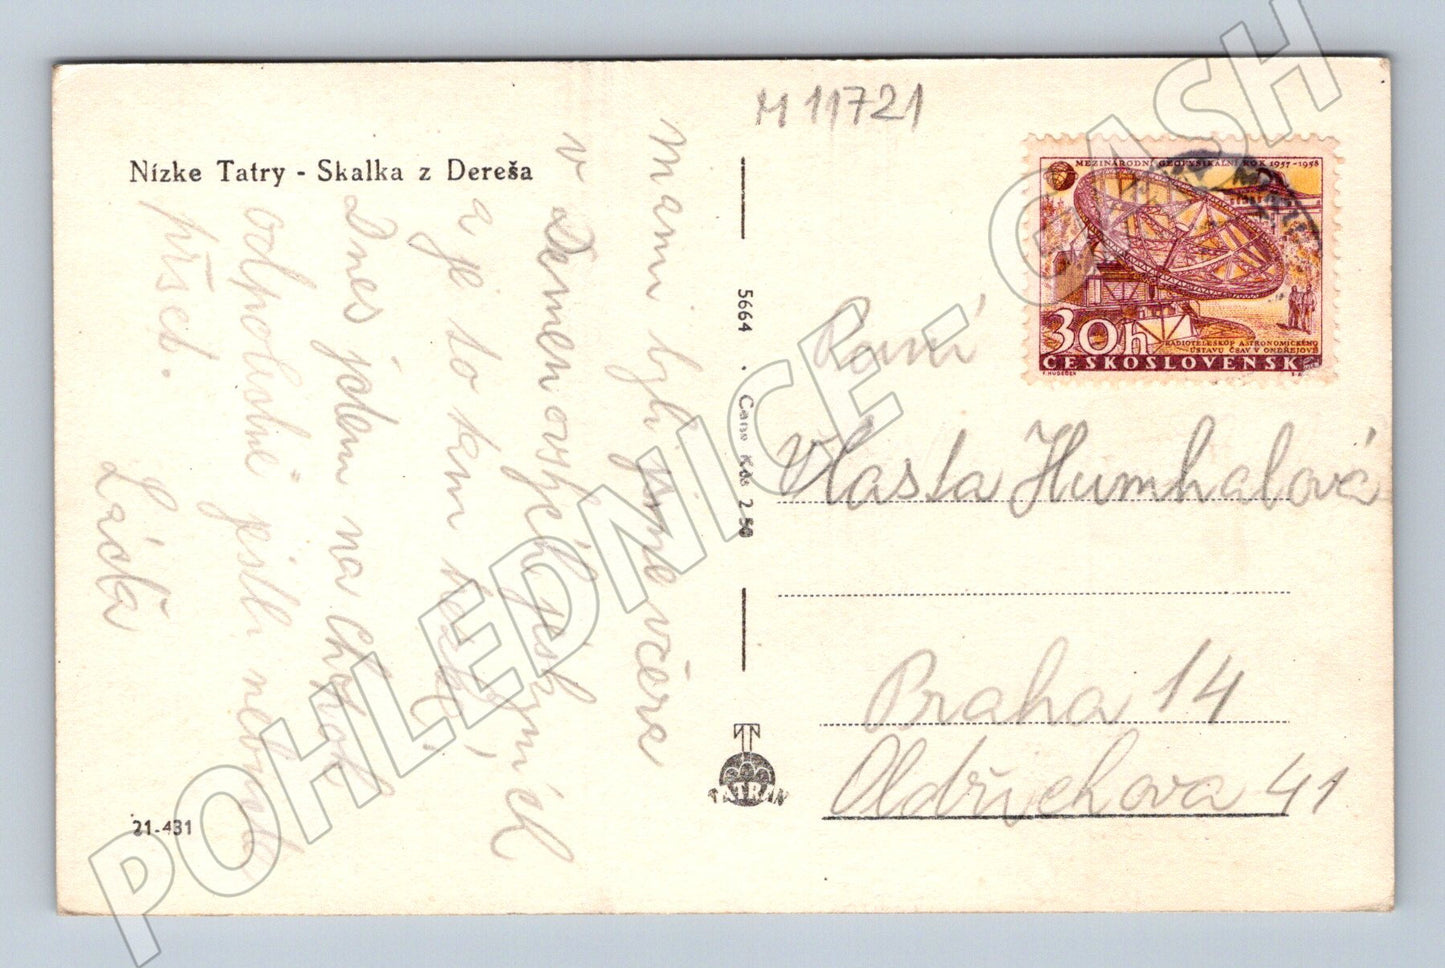 M 11721
Nízke Tatry - Skalka z Dereša
Mami byli jsme včera
v Demenovských jesk
a je to tam hezké,
Dnes jdem na Chopok
odpoledne jestli nebude
pršet.
Láďa
21-431
5664 · Cena Kčs 2.50
TATRAN
MEZINÁRODNÍ GEOFYSIKÁLNÍ ROK 1957-1958
30h
RADIOTELESKOP ASTRONOMICKÉHO
ÚSTAVU ČSAV V ONDŘEJOVĚ
ČESKOSLOVENSKO
F. HUDEČEK
Paní
Vlasta Humhalová
Praha 14
Oldřichova 41
POHLEDNICE - GASH